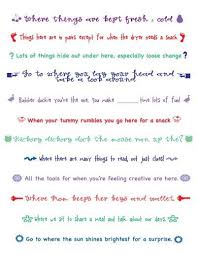 Where things are kept fresh & cold
Things here are a guess except for when the dryer needs a snack
Lots of things hide out under here, especially loose change
Go to where you lay your head and
take a look around
Rubber duckie you're the one. You make time lots of fun!
When your tummy rumbles you go here for a snack
Hickory dickory dock the mouse ran up the?
Where there are many things to read, not just clues!
All the tools for when you're feeling creative are here.
Where Mom keeps her keys and wallet.
Where we sit to share a meal and talk about our days.
Go to where the sun shines brightest for a surprise.